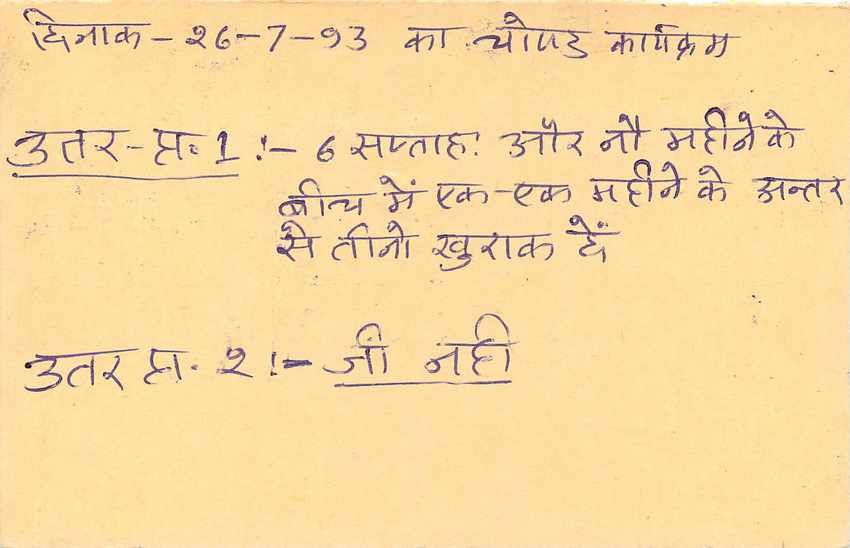 दिनाक - २६-7-93 का चोपड कार्यक्रम
उतर-प्र. 1 :- 6 सप्ताह: और नौ महीने के
बीच में एक-एक महीने के अन्तर
से तीनो खुराक दें
उतर प्र. २ :- जी नही